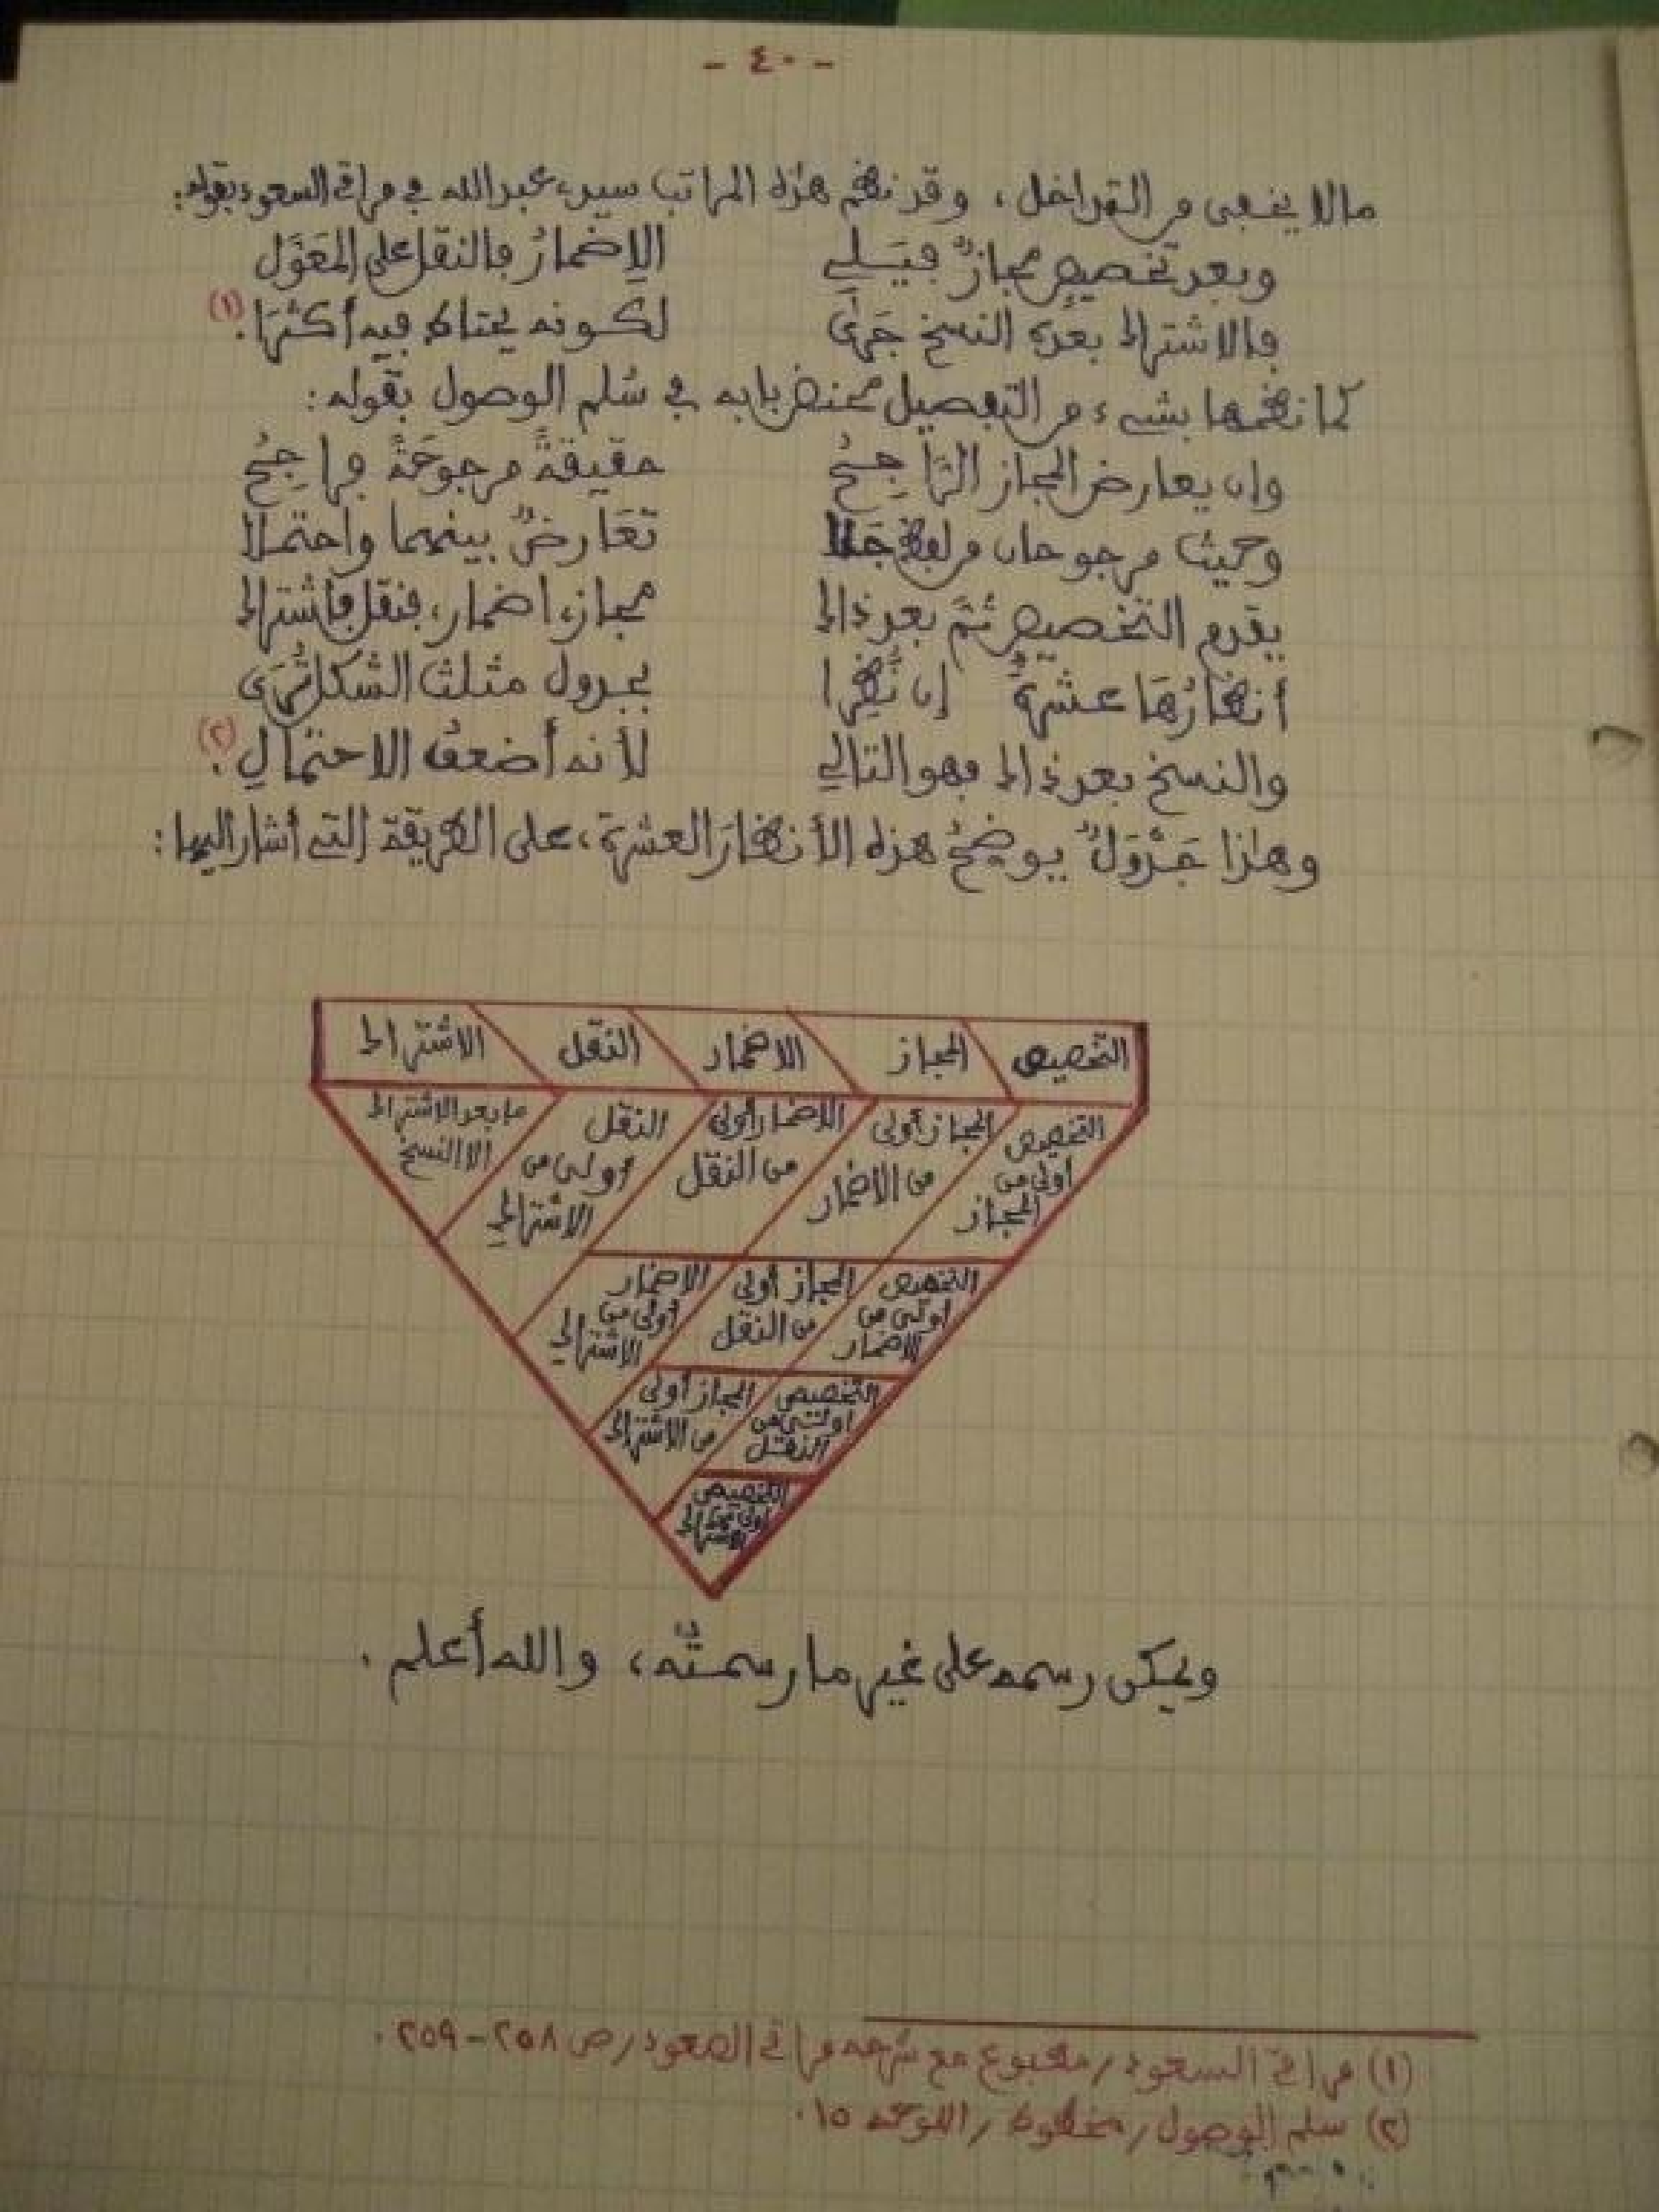 - ٤٠ -
مالا يخفى من التداخل، وقد نظم هذه المراتب سيدي عبدالله في مراقي السعود بقوله:
وبعد تخصيصٍ مجازٌ فيَلي الإضمارُ فالنقل على المُعَوَّل
فالاشتراك بعدَه النسخ جَرَى لكونه يحتاط فيه أكثرَا. (١)
كما نظمها بشيء من التفصيل محنض بابه في سُلم الوصول بقوله:
وإن يعارض المجاز الرَّاجِحُ حقيقةً مرجوحَةً فراجِحُ
وحيث مرجوحان من لفظ جَلا تعَارضٌ بينهما واحتملا
يقدم التخصيص ثُمَّ بعد ذاك مجاز، اضمار، فنقل فاشتراك
أنظارُهَا عشرةٌ إن نُظِرا بجدول مثلث الشكل تُرَى
والنسخ بعد ذاك فهو التالي لأنه أضعف الاحتمالِ. (٢)
وهٰذا جَدْوَلٌ يوضحُ هذه الأنظارَ العشرة، على الطريقة التي أشار إليها:
التخصيص المجاز الاضمار النّقل الاشتراك
التخصيص أولى من المجاز
المجاز أولى من الاضمار
الاضمار أولى من النقل
النقل أولى من الاشتراك
ما بعد الاشتراك الا النسخ
التخصيص أولى من الاضمار
المجاز أولى من النقل
الاضمار أولى من الاشتراك
التخصيص أولى من النقل
المجاز أولى من الاشتراك
التخصيص أولى من الاشتراك
ويمكن رسمه على غير ما رسمتُه، والله أعلم.
(١) مراقي السعود/مطبوع مع شرحه مراقي الصعود/ص ٢٥٨-٢٥٩.
(٢) سلم الوصول/مخطوط/اللوحة ١٥.